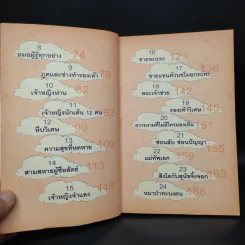 8
หมอผู้รู้ทุกอย่าง 74
9
ภูตและช่างทำรองเท้า 78
10
เจ้าหญิงห่าน 82
11
เจ้าหญิงนักเต้น 12 คน 92
12
หีบวิเศษ 99
13
ความสุขที่หดหาย 109
14
สามสหายผู้ซื่อสัตย์ 113
15
เจ้าหญิงจำแลง 148
16
ชายละเมอ 123
17
ชายแขนด้วนขโมยกระทะ 136
18
พระเจ้าช่วย 142
19
รองเท้าวิเศษ 145
20
ความงามที่ไม่มีใครมองเห็น 151
21
ซ่อนสับ ซ่อนปัญญา 155
22
แม่ทัพเอก 160
23
สิงโตกับสุนัขจิ้งจอก 163
24
หมาป่าทะนงตน 166